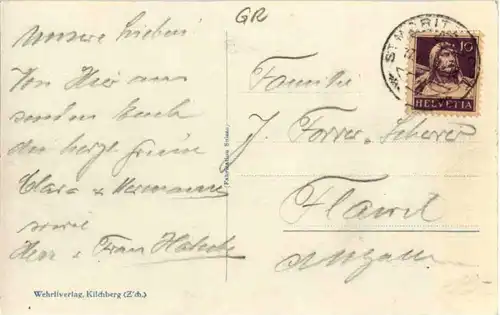 Unsere Lieben!
Von Hier aus
senden Euch
die herzl. Grüsse
Clara u. Hermann
sowie
Herr u. Frau
GR
ST. MORITZ
10
HELVETIA
Familie
J. Forrer-Scherrer
Flawil
St. Gallen
Wehrliverlag, Kilchberg (Z'ch.)